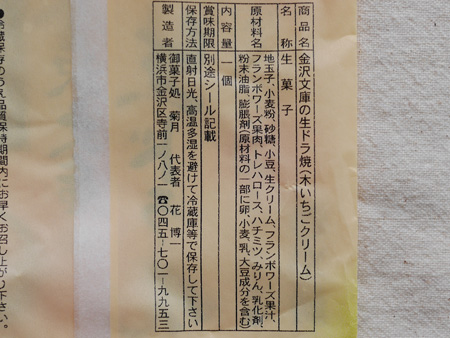 商品名 金沢文庫の生ドラ焼(木いちごクリーム)
名称 生菓子
原材料名 地玉子、小麦粉、砂糖、小豆、生クリーム、フランボワーズ果汁、
フランボワーズ果肉、トレハロース、ハチミツ、みりん、乳化剤、
粉末油脂、膨脹剤(原材料の一部に卵、小麦、乳、大豆成分を含む)
内容量 一個
賞味期限 別途シール記載
保存方法 直射日光、高温多湿を避けて冷蔵庫等で保存して下さい
製造者 御菓子処 菊月 代表者 花 博一
横浜市金沢区寺前一ノ八ノ一 ☎〇四五-七〇一-九九五三
●冷蔵保存のうえ品質保持期間内にお早くお召し上がり下さい。